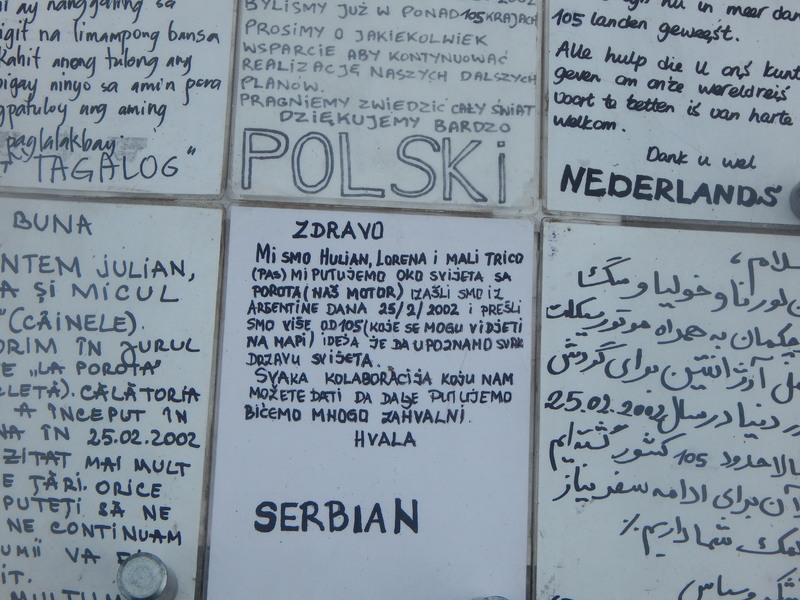 ay nanggaling sa
igit na limampong bansa
kahit anong tulong ang
bigay ninyo sa amin para
ang aming
paglalakbay
TAGALOG"
BYLIŚMY JUŻ W PONAD 105 KRAJACH
PROSIMY O JAKIEKOLWIEK
WSPARCIE ABY KONTYNUOWAĆ
REALIZACJĘ NASZYCH DALSZYCH
PLANÓW.
PRAGNIEMY ZWIEDZIĆ CAŁY ŚWIAT
DZIĘKUJEMY BARDZO
POLSKi
in meer dan
105 landen geweest.
Alle hulp die U ons kunt
geven om onze wereldreis
voort te zetten is van harte
welkom.
Dank u wel
NEDERLANDS
BUNA
NTEM JULIAN,
A ŞI MICUL
"(CÂINELE).
ORIM ÎN JURUL
E „LA POROTA"
LETĂ). CĂLĂTORIA
A ÎNCEPUT ÎN
NA ÎN 25.02.2002
ZITAT MAI MULT
E ŢĂRI. ORICE
PUTEŢI SĂ NE
NE CONTINUAM
VA
IT.
MULTUM
ZDRAVO
Mi SMO HULIAN, LORENA i MALI TRICO
(PAS) Mi PUTUJEMO OKO SVIJETA SA
POROTA (NAŠ MOTOR) IZAŠLI SMO IZ
ARGENTINE DANA 25/2/2002 i PREŠLI
SMO VIŠE OD 105 (KOJE SE MOGU VIDJETI
NA MAPI) IDEJA JE DA UPOZNAMO SVAK
DRZAVU SVIJETA.
SVAKA KOLABORACIJA KOJU NAM
MOŽETE DATI DA DALJE PUTUJEMO
BIĆEMO MNOGO ZAHVALNI.
HVALA
SERBIAN
سلام،
لورنا و خولیا و مگ
به همراه موتورسیکلت
آرژانتین برای گردش
دنیا در سال 25.02.2002
حدود 105 کشور گشته‌ایم
آن برای ادامه سفر نیاز
کمک شما داریم٪
و سپاس